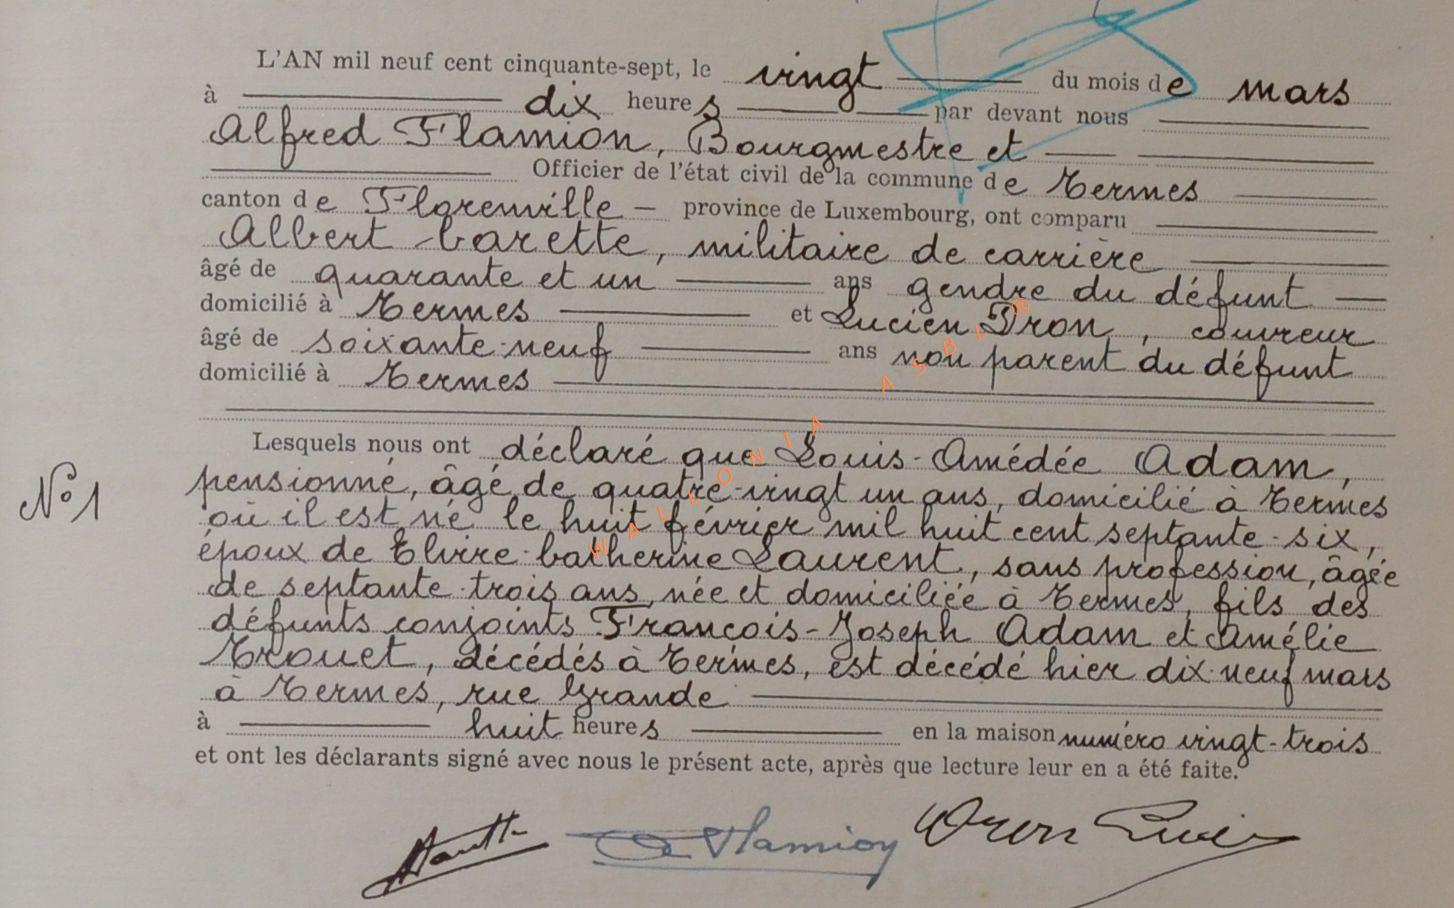 L'AN mil neuf cent cinquante-sept, le vingt du mois de mars
à dix heures par devant nous
Alfred Flamion, Bourgmestre et
Officier de l'état civil de la commune de Termes
canton de Florenville – province de Luxembourg, ont comparu
Albert Carette, militaire de carrière
âgé de quarante et un ans gendre du défunt
domicilié à Termes et Lucien Dron, couvreur
âgé de soixante-neuf ans non parent du défunt
domicilié à Termes
Lesquels nous ont déclaré que Louis-Amédée Adam,
N° 1
pensionné, âgé de quatre-vingt un ans, domicilié à Termes
où il est né le huit février mil huit cent septante-six,
époux de Elvire-Catherine Laurent, sans profession, âgée
de septante-trois ans, née et domiciliée à Termes, fils des
défunts conjoints François-Joseph Adam et Amélie
Trouet, décédés à Termes, est décédé hier dix-neuf mars
à Termes, rue Grande
à huit heures en la maison numéro vingt-trois
et ont les déclarants signé avec nous le présent acte, après que lecture leur en a été faite.
Flamion Dron Lucien
WALLONIA ASBL